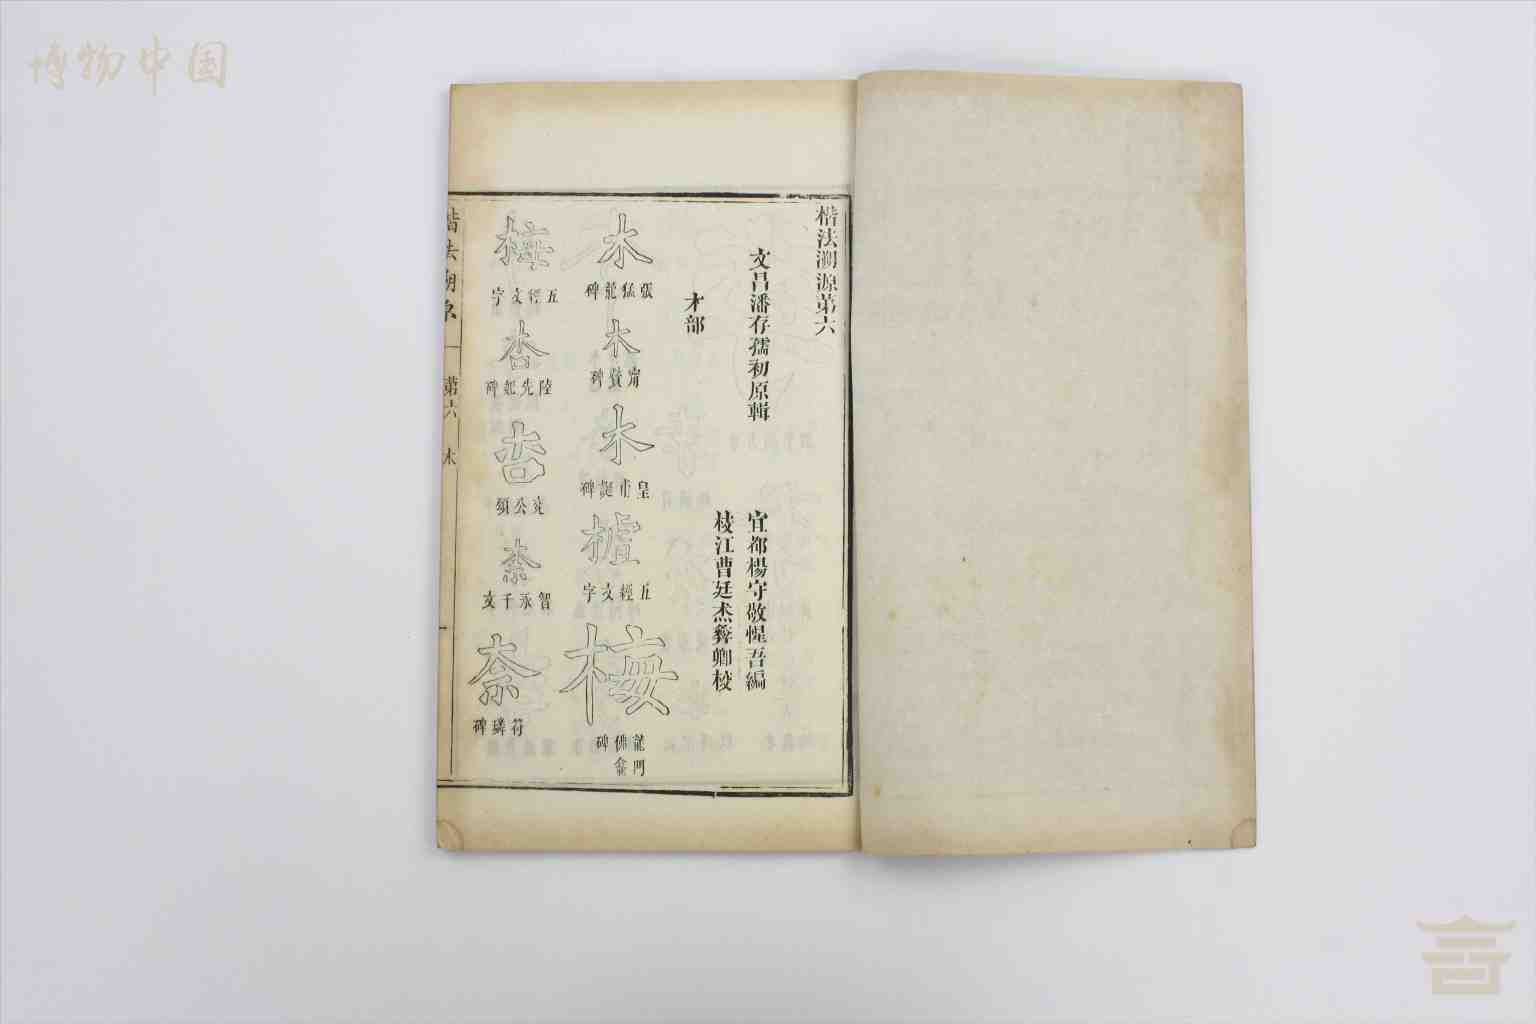 博物中国
楷法溯源第六
文昌潘存孺初原輯
宜都楊守敬惺吾編
枝江曹廷杰彝卿校
木部
木
張猛龍碑
木
甯贙碑
木
皇甫誕碑
樝
五經文字
梅
龍門佛龕碑
梅
五經文字
杏
陸先妃碑
杏
兗公頌
柰
智永千文
柰
符璘碑
楷法溯原
第六
木